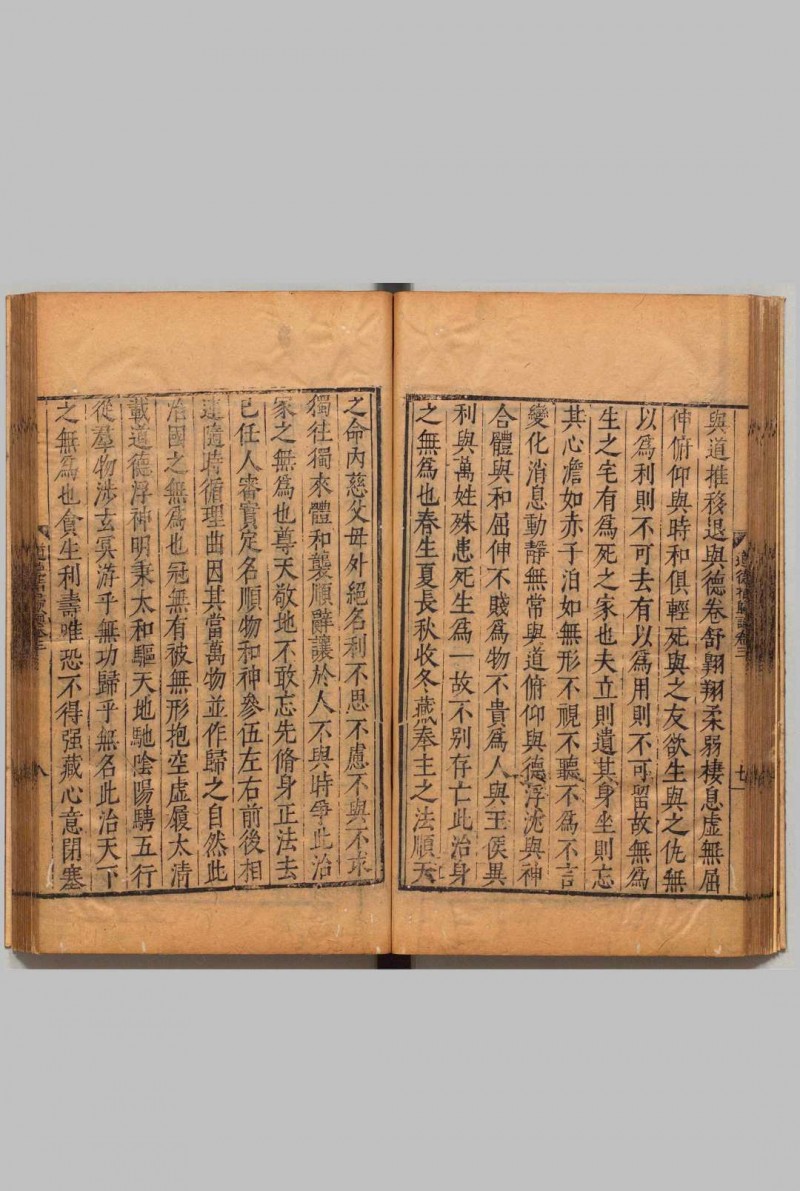 與道推移退與德卷舒翱翔柔弱棲息虛無屈
伸俯仰與時和俱輕死與之友欲生與之仇無
以爲利則不可去有以爲用則不可留故無爲
生之宅有爲死之家也夫立則遺其身坐則忘
其心澹如赤子泊如無形不視不聽不爲不言
變化消息動靜無常與道俯仰與德浮沉與神
合體與和屈伸不賤爲物不貴爲人與王侯異
利與萬姓殊患死生爲一故不别存亡此治身
之無爲也春生夏長秋收冬藏奉主之法順天
之命內慈父母外絕名利不思不慮不與不求
獨往獨來體和襲順辭讓於人不與時爭此治
家之無爲也尊天敬地不敢忘先脩身正法去
己任人審實定名順物和神參伍左右前後相
連隨時循理曲因其當萬物並作歸之自然此
治國之無爲也冠無有被無形抱空虛履太清
載道德浮神明秉太和驅天地馳陰陽騁五行
從羣物涉玄冥游乎無功歸乎無名此治天下
之無爲也貪生利壽唯恐不得强藏心意閉塞
道德指歸論卷三
七
八